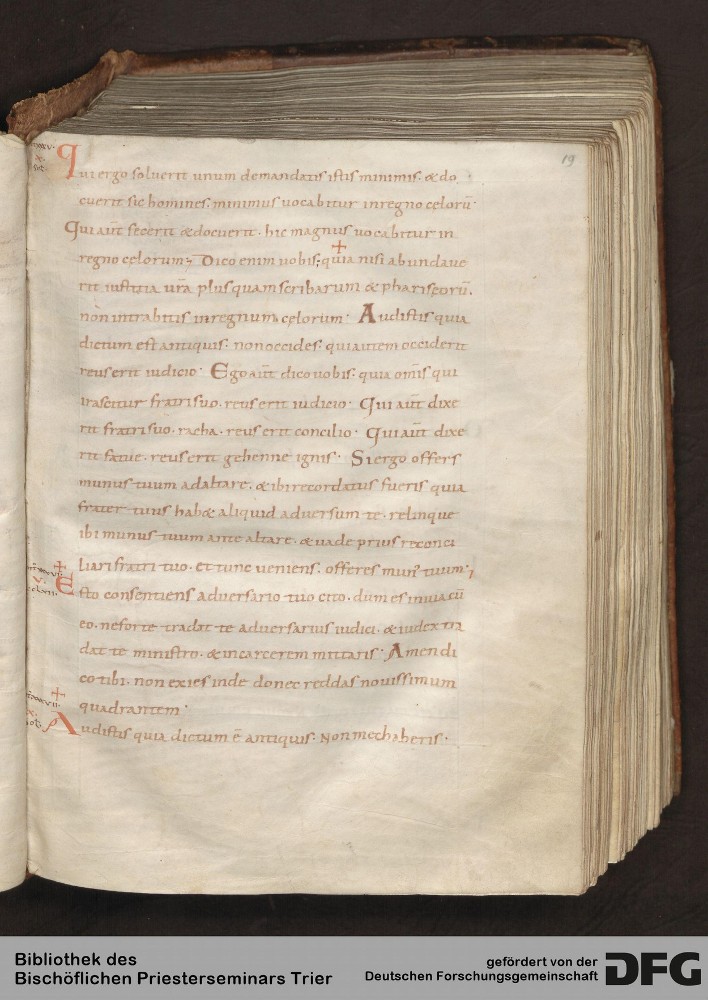 19
Qui ergo soluerit unum demandatis istis minimis. & do
cuerit sic homines. minimus uocabitur inregno celorū.
Qui aūt fecerit & docuerit. hic magnus uocabitur in
regno celorum; Dico enim uobis; quia nisi abundaue
rit iustitia ur̄a plusquam scribarum & phariseorū.
non intrabitis inregnum celorum. Audistis quia
dictum est antiquis. non occides. qui autem occiderit
reus erit iudicio. Ego aūt dico uobis. quia om̄is qui
irascitur fratri suo. reus erit iudicio. Qui aūt dixe
rit fratri suo. racha. reus erit concilio. Qui aūt dixe
rit fatue. reus erit gehenne ignis. Si ergo offers
munus tuum ad altare. & ibi recordatus fueris quia
frater tuus hab& aliquid aduersum te. relinque
ibi munus tuum ante altare. & uade prius reconci
liari fratri tuo. et tunc ueniens. offeres mun᾽ tuum;
Esto consentiens aduersario tuo cito. dum es in uia cū
eo. ne forte tradat te aduersarius iudici. & iudex tra
dat te ministro. & in carcerem mittaris. Amen di
co tibi. non exies inde donec reddas nouissimum
quadrantem.
Audistis quia dictum ē antiquis. Non mechaberis.
Bibliothek des
Bischöflichen Priesterseminars Trier
gefördert von der
Deutschen Forschungsgemeinschaft
DFG